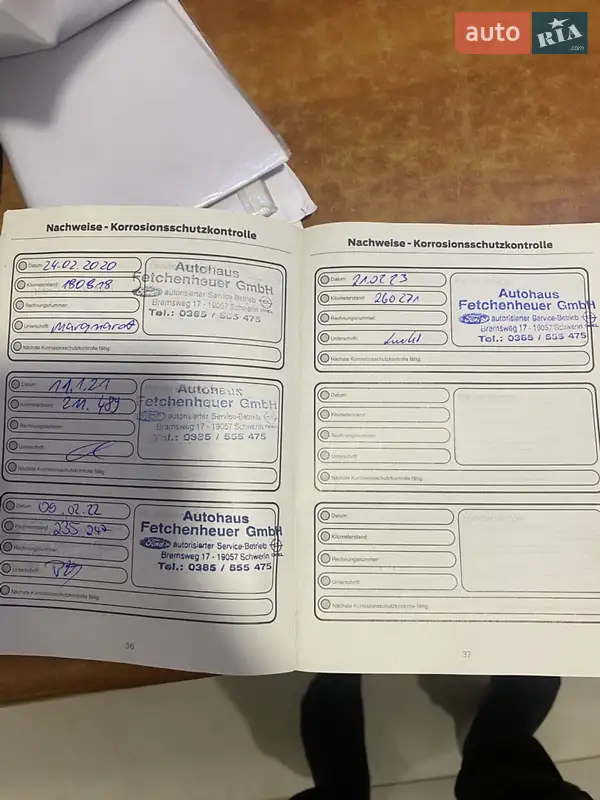 auto RIA .com
Nachweise - Korrosionsschutzkontrolle
Datum: 24.02.2020
Kilometerstand: 180818
Rechnungsnummer:
Unterschrift: Marquardt
Nächste Korrosionsschutzkontrolle fällig:
Autohaus
Fetchenheuer GmbH
autorisierter Service-Betrieb
Bremsweg 17 - 19057 Schwerin
Tel.: 0385 / 555 475
Datum: 11.1.21
Kilometerstand: 211.489
Rechnungsnummer:
Unterschrift:
Nächste Korrosionsschutzkontrolle fällig:
Autohaus
Fetchenheuer GmbH
autorisierter Service-Betrieb
Bremsweg 17 - 19057 Schwerin
Tel.: 0385 / 555 475
Datum: 09.02.22
Kilometerstand: 235 247
Rechnungsnummer:
Unterschrift:
Nächste Korrosionsschutzkontrolle fällig:
Autohaus
Fetchenheuer GmbH
Ford autorisierter Service-Betrieb
Bremsweg 17 - 19057 Schwerin
Tel.: 0385 / 555 475
36
Nachweise - Korrosionsschutzkontrolle
Datum: 21.02.23
Kilometerstand: 260 271
Rechnungsnummer:
Unterschrift:
Nächste Korrosionsschutzkontrolle fällig:
Autohaus
Fetchenheuer GmbH
Ford autorisierter Service-Betrieb
Bremsweg 17 - 19057 Schwerin
Tel.: 0385 / 555 475
Datum:
Kilometerstand:
Rechnungsnummer:
Unterschrift:
Nächste Korrosionsschutzkontrolle fällig:
Datum:
Kilometerstand:
Rechnungsnummer:
Unterschrift:
Nächste Korrosionsschutzkontrolle fällig:
37